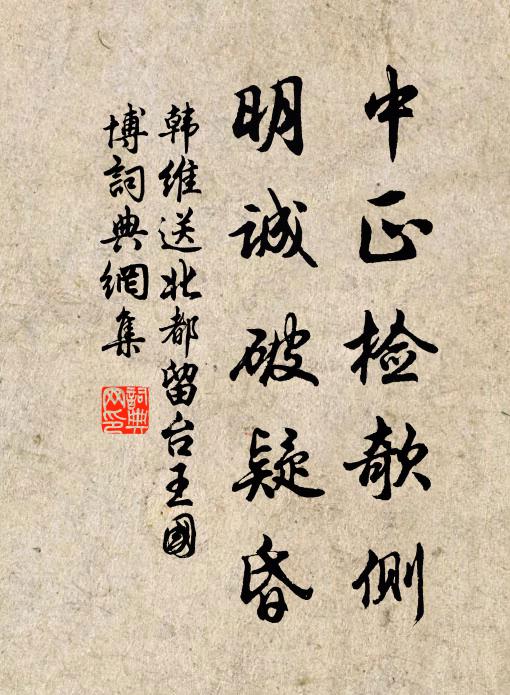 中正检欹侧
明诚破疑昏
韩维送北都留台王國
博詞典網集
詞典网印